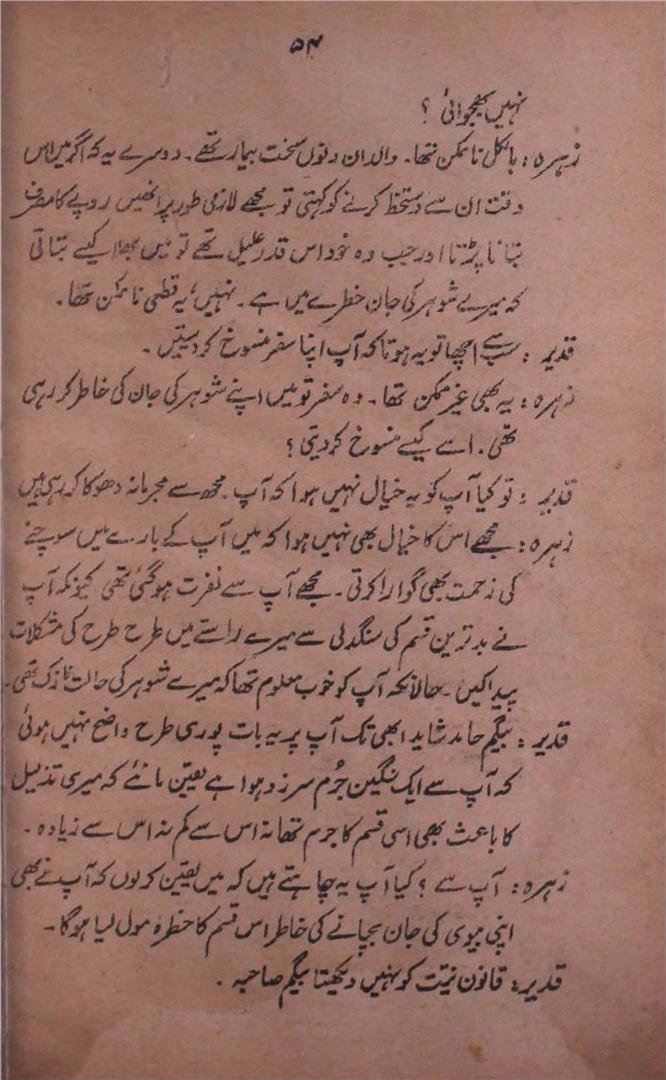 ۵۴
نہیں بھجوائی ؟
زہرہ : بالکل ناممکن تھا۔ والد ان دنوں سخت بیمار تھے۔ دوسرے یہ کہ اگر میں اس
وقت ان سے دستخط کرنے کو کہتی تو مجھے لازمی طور پر انھیں روپے کا مصرف
بتانا پڑتا اور جب وہ خود اس قدر علیل تھے تو میں بھلا کیسے بتاتی
کہ میرے شوہر کی جان خطرے میں ہے۔ نہیں، یہ قطعی ناممکن تھا۔
قدیر : سب سے اچھا تو یہ ہوتا کہ آپ اپنا سفر منسوخ کر دیتیں۔
زہرہ : یہ بھی غیر ممکن تھا۔ وہ سفر تو میں اپنے شوہر کی جان کی خاطر کر رہی
تھی۔ اسے کیسے منسوخ کر دیتی ؟
قدیر : تو کیا آپ کو یہ خیال نہیں ہوا کہ آپ مجھ سے مجرمانہ دھوکا کر رہی ہیں
زہرہ : مجھے اس کا خیال بھی نہیں ہوا کہ میں آپ کے بارے میں سوچنے
کی زحمت بھی گوارا کرتی۔ مجھے آپ سے نفرت ہو گئی تھی کیونکہ آپ
نے بدترین قسم کی سنگدلی سے میرے راستے میں طرح طرح کی مشکلات
پیدا کیں۔ حالانکہ آپ کو خوب معلوم تھا کہ میرے شوہر کی حالت نازک تھی۔
قدیر : بیگم حامد شاید ابھی تک آپ پر یہ بات پوری طرح واضح نہیں ہوئی
کہ آپ سے ایک سنگین جُرم سرزد ہوا ہے یقین مانئے کہ میری تذلیل
کا باعث بھی اسی قسم کا جرم تھا نہ اس سے کم نہ اس سے زیادہ۔
زہرہ : آپ سے ؟ کیا آپ یہ چاہتے ہیں کہ میں یقین کر لوں کہ آپ نے بھی
اپنی بیوی کی جان بچانے کی خاطر اس قسم کا خطرہ مول لیا ہوگا۔
قدیر : قانون نیّت کو نہیں دیکھتا بیگم صاحبہ۔